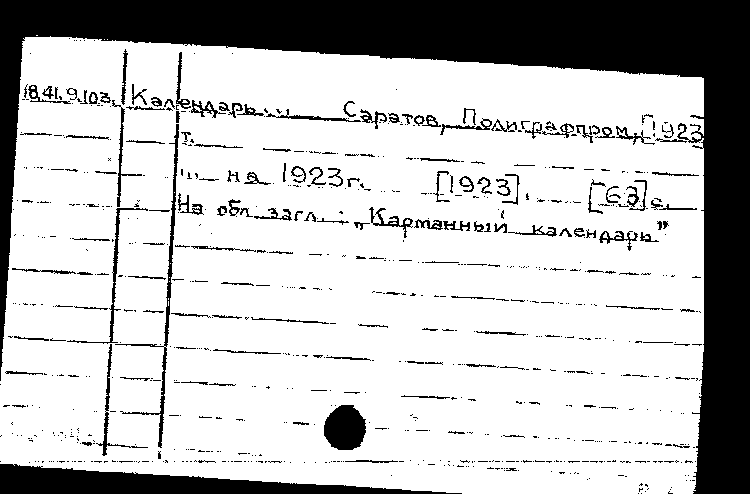 18.41.9.103. Календарь... Саратов, Полиграфпром, [1923
т.
... на 1923 г. [1923]. [63] с.
На обл. загл.: „Карманный календарь"